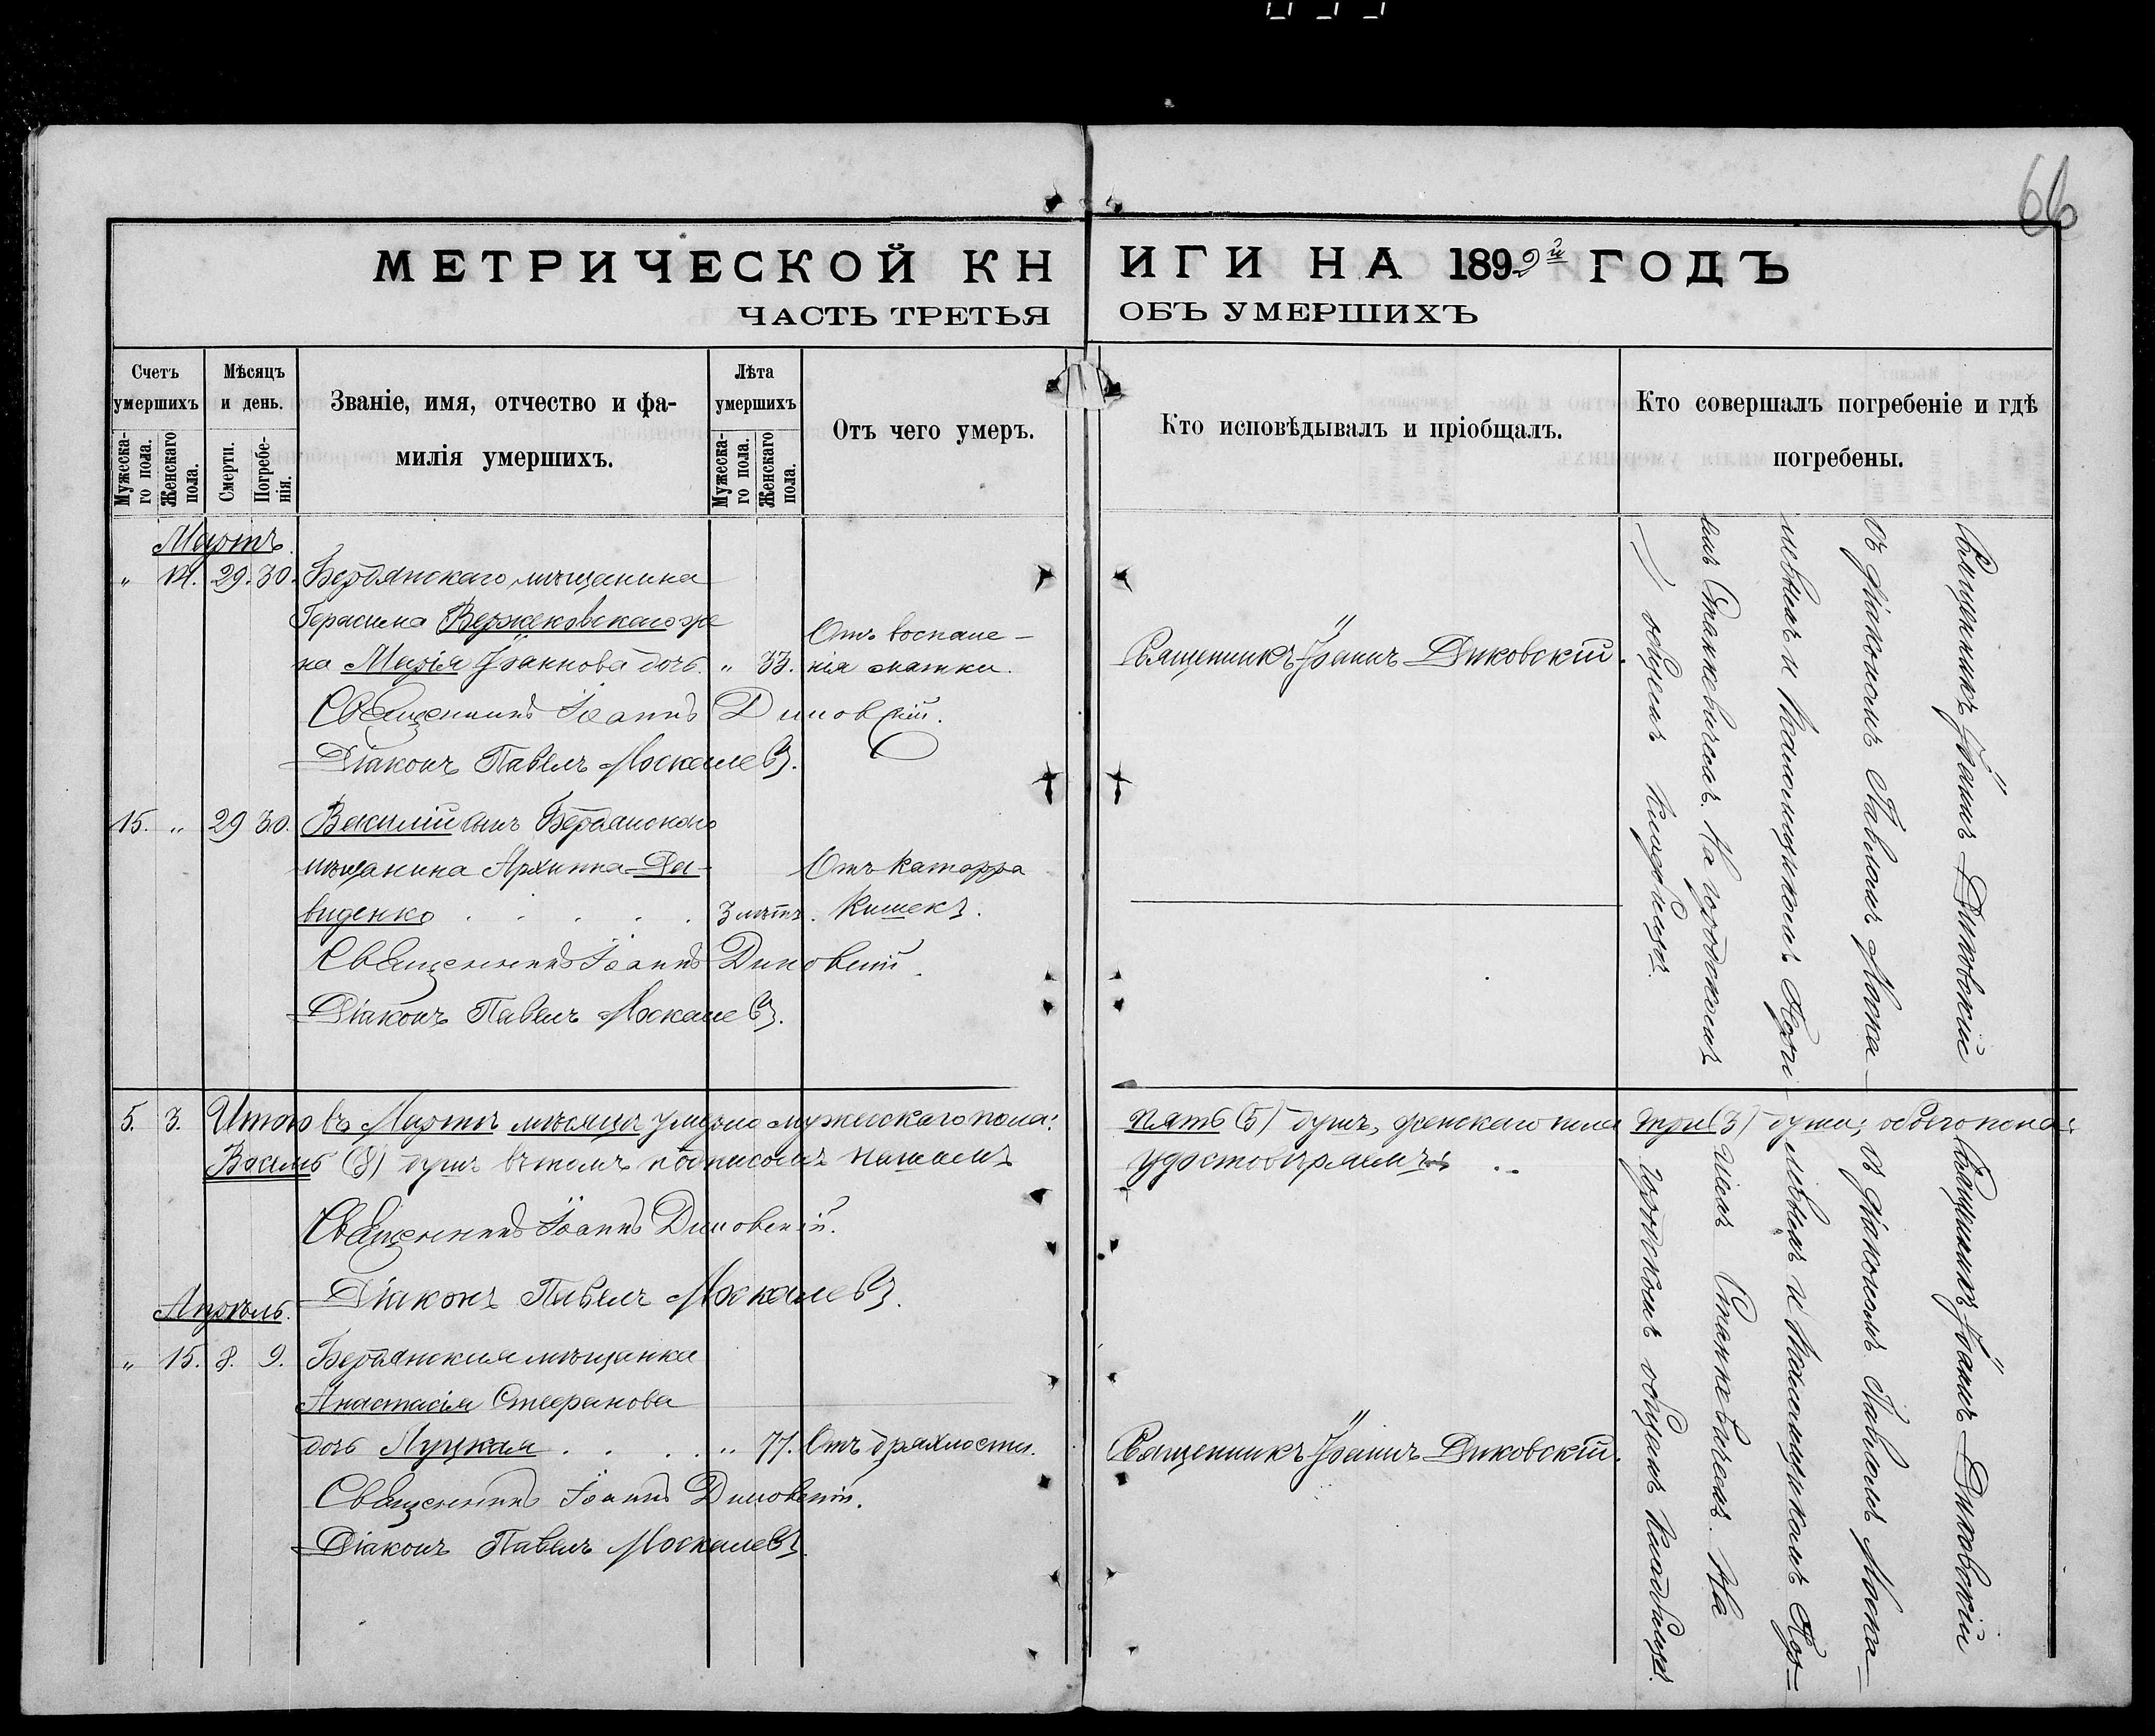 66
МЕТРИЧЕСКОЙ КНИГИ НА 1892й ГОДЪ
ЧАСТЬ ТРЕТЬЯ ОБЪ УМЕРШИХЪ
Счетъ умершихъ
Мужеска-го пола.
Женскаго пола.
Мѣсяцъ и день.
Смерти.
Погребе-нія.
Званіе, имя, отчество и фа-
милія умершихъ.
Лѣта умершихъ
Мужеска-го пола.
Женскаго пола.
Отъ чего умеръ.
Кто исповѣдывалъ и пріобщалъ.
Кто совершалъ погребеніе и гдѣ
погребены.
Мартъ.
" 14. 29. 30. Бердянскаго мѣщанина
Герасима Вержековскаго же
на Марія Іоаннова дочь. " 33.
Отъ воспале-
нія матки.
Священникъ Іоаннъ Диковскій.
Священникъ Іоаннъ Диковскій.
Діаконъ Павелъ Москалевъ.
15. " 29 30. Василій сынъ Бердянскаго
мѣщанина Архиппа Да-
виденко . . . . . 3 лѣтъ.
Отъ катарра
кишекъ.
Священникъ Іоаннъ Диковскій.
Діаконъ Павелъ Москалевъ.
Священникъ Іоаннъ Диковскій
съ діакономъ Павломъ Моска-
левымъ и
Станкевичемъ. На городскомъ
общемъ кладбищѣ.
5. 3. Итого въ Мартѣ мѣсяцѣ умерло мужескаго пола: пять (5) душъ, женскаго пола три (3) души; обоего пола:
Восемь (8) душъ въ томъ подписомъ нашимъ удостовѣряемъ:
Священникъ Іоаннъ Диковскій.
Діаконъ Павелъ Москалевъ.
Апрѣль.
" 15. 8. 9. Бердянская мѣщанка
Анастасія Стефанова
дочь Луцкая . . . . " 77. Отъ дряхлости.
Священникъ Іоаннъ Диковскій.
Священникъ Іоаннъ Диковскій.
Діаконъ Павелъ Москалевъ.
Священникъ Іоаннъ Диковскій
съ діакономъ Павломъ Моска-
левымъ и
Станкевичемъ. На
городскомъ общемъ кладбищѣ.